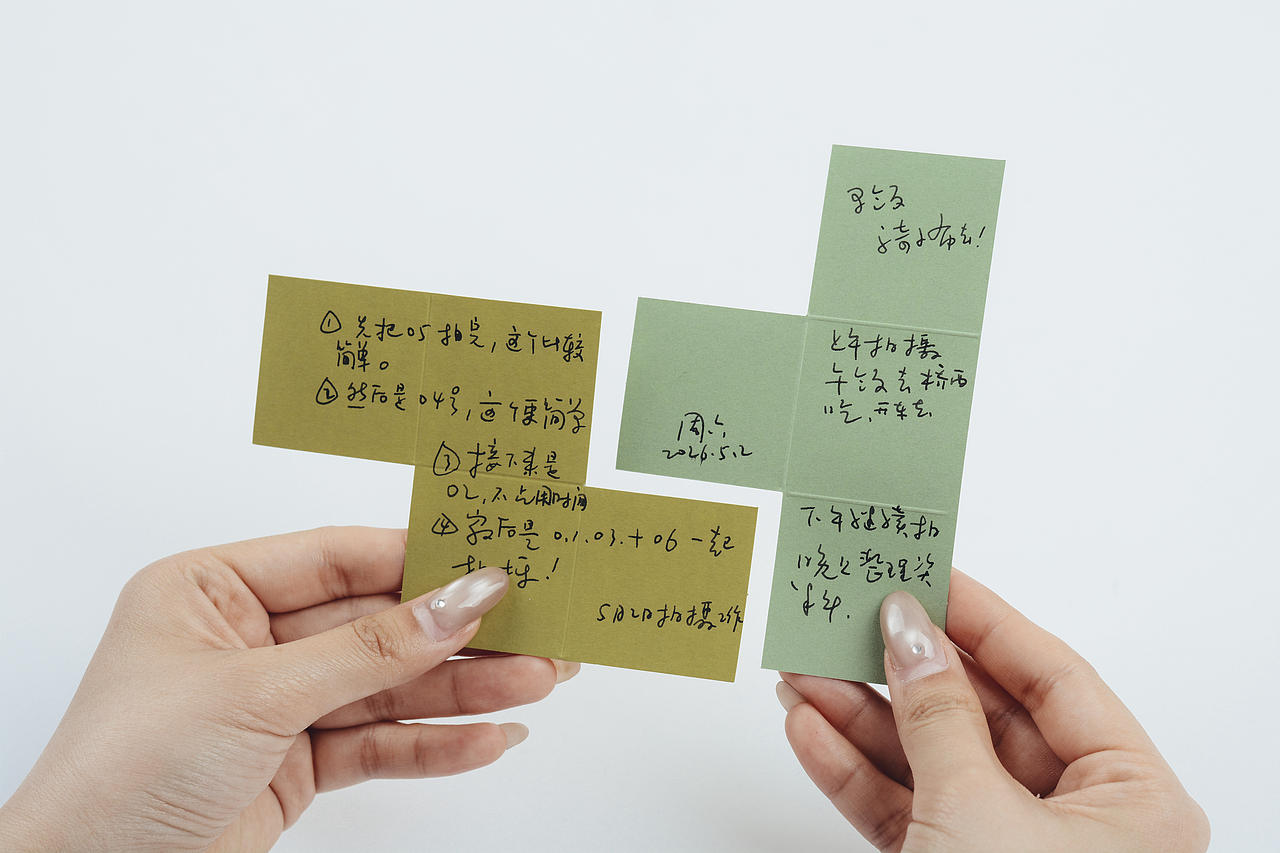 ① 先把05拍完，这个比较
简单。
② 然后是04号，这个更简单
③ 接下来是
02，不占用时间
④ 最后是 0.1.03.+06 一起
拍摆！
5月2日拍摄工作
早饭
骑小布去！
上午拍摄
午饭去桥西
吃，开车去
周六
2026.5.2
下午继续拍
晚上整理资